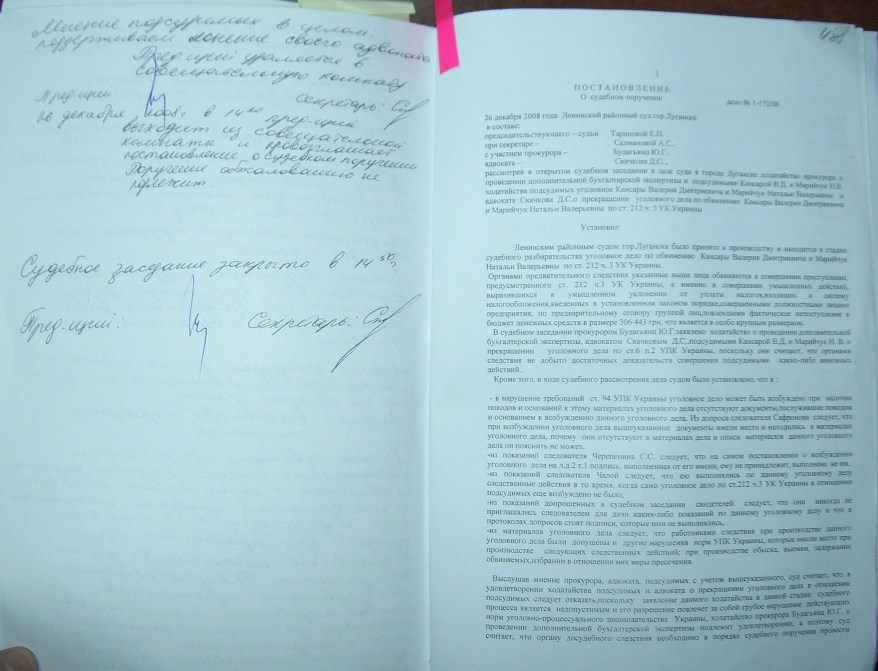 Мнение подсудимых в целом
поддерживаем мнение своего адвоката
Пред-щий удаляется в
совещательную комнату
Пред-щий Секретарь:
26 декабря 2008г. в 14 00 пред-щий
выходит из совещательной
комнаты и провозглашает
постановление о судебном поручении
Поручение обжалованию не
подлежит
Судебное заседание закрыто в 14 30
Пред-щий: Секретарь:
1
ПОСТАНОВЛЕНИЕ
О судебном поручении
дело № 1-172/08
26 декабря 2008 года Ленинский районный суд гор.Луганска
в составе:
председательствующего – судьи Тарановой Е.П.
при секретаре – Салмановой А.С.,
с участием прокурора – Будагьянц Ю.Г.
адвоката – Скачкова Д.С.,
рассмотрев в открытом судебном заседании в зале суда в городе Луганске ходатайство прокурора о
проведении дополнительной бухгалтерской экспертизы и подсудимыми Кансарой В.Д. и Марийчук Н.В.
ходатайства подсудимых уголовное Кансары Валерия Дмитриевича и Марийчук Натальи Валерьевны и
адвоката Скачкова Д.С.о прекращении уголовного дела по обвинению Кансары Валерия Дмитриевича
и Марийчук Натальи Валерьевны по ст. 212 ч. 3 УК Украины
Установил:
Ленинским районным судом гор.Луганска было принято к производству и находится в стадии
судебного разбирательства уголовное дело по обвинению Кансары Валерия Дмитриевича и Марийчук
Натальи Валерьевны по ст. 212 ч.3 УК Украины.
Органами предварительного следствия указанные выше лица обвиняются в совершении преступления,
предусмотренного ст. 212 ч.3 УК Украины, а именно в совершении умышленных действий,
выразившихся в умышленном уклонении от уплаты налогов,входящих в систему
налогообложения,введенных в установленном законом порядке,совершенными должностными лицами
предприятия, по предварительному сговору группой лиц,повлекшими фактическое непоступление в
бюджет денежных средств в размере 306 443 грн, что является в особо крупным размером.
В судебном заседании прокурором Будагьянц Ю.Г.заявлено ходатайство о проведении дополнительной
бухгалтерской экспертизы, адвокатом Скачковым Д.С,.подсудимыми Кансарой В.Д. и Марийчук Н. В. о
прекращении уголовного дела по ст.6 п.2 УПК Украины, поскольку они считают, что органами
следствия не добыто достаточных доказательств совершения подсудимыми каких-либо виновных
действий..
Кроме того, в ходе судебного рассмотрения дела судом было установлено, что в :
- в нарушение требований ст. 94 УПК Украины уголовное дело может быть возбуждено при наличии
поводов и оснований к этому материалах уголовного дела отсутствуют документы,послужившие поводом
и основанием к возбуждению данного уголовного дела. Из допроса следователя Сафронова следует,что
при возбуждении уголовного дела вышеуказанные документы имели место и находились в материалах
уголовного дела, почему они отсутствуют в материалах дела и описи материалов данного уголовного
дела он пояснить не может.
-из показаний следователя Черепенина С.С. следует, что на самом постановлении о возбуждении
уголовного дела на л.д.2 т.1 подпись, выполненная от его имени, ему не принадлежит, выполнена не им,
-из показаний следователя Чалой следует, что ею выполнялись по данному уголовному делу
следственные действия в то время, когда само уголовное дело по ст.212 ч.3 УК Украины в отношении
подсудимых еще возбуждено не было,
-из показаний допрошенных в судебном заседании свидетелей следует, что они никогда не
приглашались следователем для дачи каких-либо показаний по данному уголовному делу и что в
протоколах допросов стоят подписи, которые ими не выполнялись,
-из материалов уголовного дела следует, что работниками следствия при производстве данного
уголовного дела были допущены и другие нарушения норм УПК Украины, которые имели место при
производстве следующих следственных действий: при производстве обыска, выемки, задержании
обвиняемых,избрании в отношении них меры пресечения.
Выслушав мнение прокурора, адвоката, подсудимых с учетом вышеуказанного, суд считает, что в
удовлетворении ходатайства подсудимых и адвоката о прекращении уголовного дела в отношении
подсудимых следует отказать,поскольку заявление данного ходатайства в данной стадии судебного
процесса является недопустимым и его разрешение повлечет за собой грубое нарушение действующих
норм уголовно-процессуального законодательства Украины, ходатайство прокурора Будагьянц Ю.Г. о
проведении дополнительной бухгалтерской экспертизы подлежит удовлетворению, а поэтому суд
считает, что органу досудебного следствия необходимо в порядке судебного поручения провести